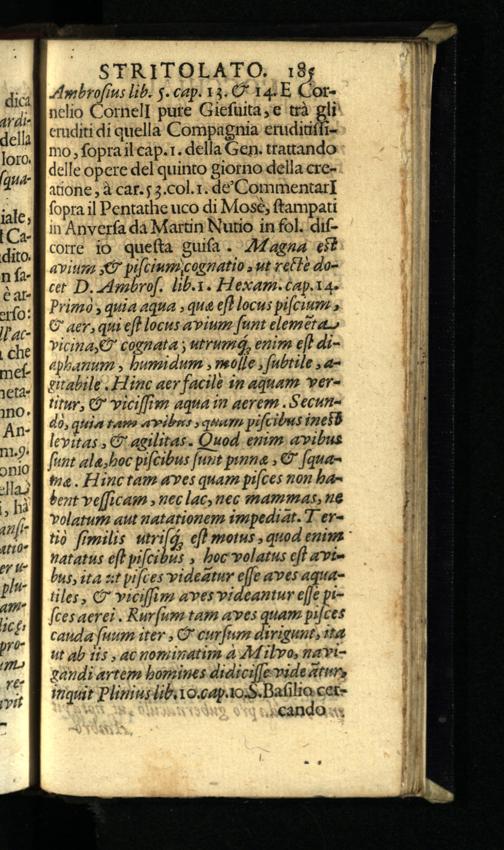 STRITOLATO. 185
Ambrosius lib. 5. cap. 13. & 14. E Cor-
nelio CornelI pure Giesuita, e trà gli
eruditi di quella Compagnia eruditissi-
mo, sopra il cap. 1. della Gen. trattando
delle opere del quinto giorno della cre-
atione, à car. 53. col. 1. de' CommentarI
sopra il Pentathe uco di Mosè, stampati
in Anversa da Martin Nutio in fol. dis-
corre io questa guisa. Magna est
avium, & piscium cognatio, ut rectè do-
cet D. Ambros. lib. 1. Hexam. cap. 14.
Primò, quia aqua, quæ est locus piscium,
& aer, qui est locus avium sunt elemēta
vicina, & cognata; utrumq; enim est di-
aphanum, humidum, molle, subtile, a-
gitabile. Hinc aer facilè in aquam ver-
titur, & vicissim aqua in aerem. Secun-
dò, quia tam avibus, quam piscibus inest
levitas, & agilitas. Quod enim avibus
sunt alæ, hoc piscibus sunt pinnæ, & squa-
mæ. Hinc tam aves quam pisces non ha-
bent vessicam, nec lac, nec mammas, ne
volatum aut natationem impediāt. Ter-
tiò similis utrisq; est motus, quod enim
natatus est piscibus, hoc volatus est avi-
bus, ita ut pisces videātur esse aves aqua-
tiles, & vicissim aves videantur esse pi-
sces aerei. Rursum tam aves quam pisces
cauda suum iter, & cursum dirigunt, ita
ut ab iis, ac nominatim à Milvo, navi-
gandi artem homines didicisse videātur,
inquit Plinius lib. 10. cap. 10. S. Basilio cer-
cando
dica
ardi-
della
loro.
squa-
iale,
l Ca-
dito.
n sa-
è ar-
erso:
ll'ac-
a che
mes-
neta-
nno.
An-
m. 9.
onio
ella
i, hà
ansi-
atio-
er u-
plu-
am-
lice,
pro-
um
re-
uvit